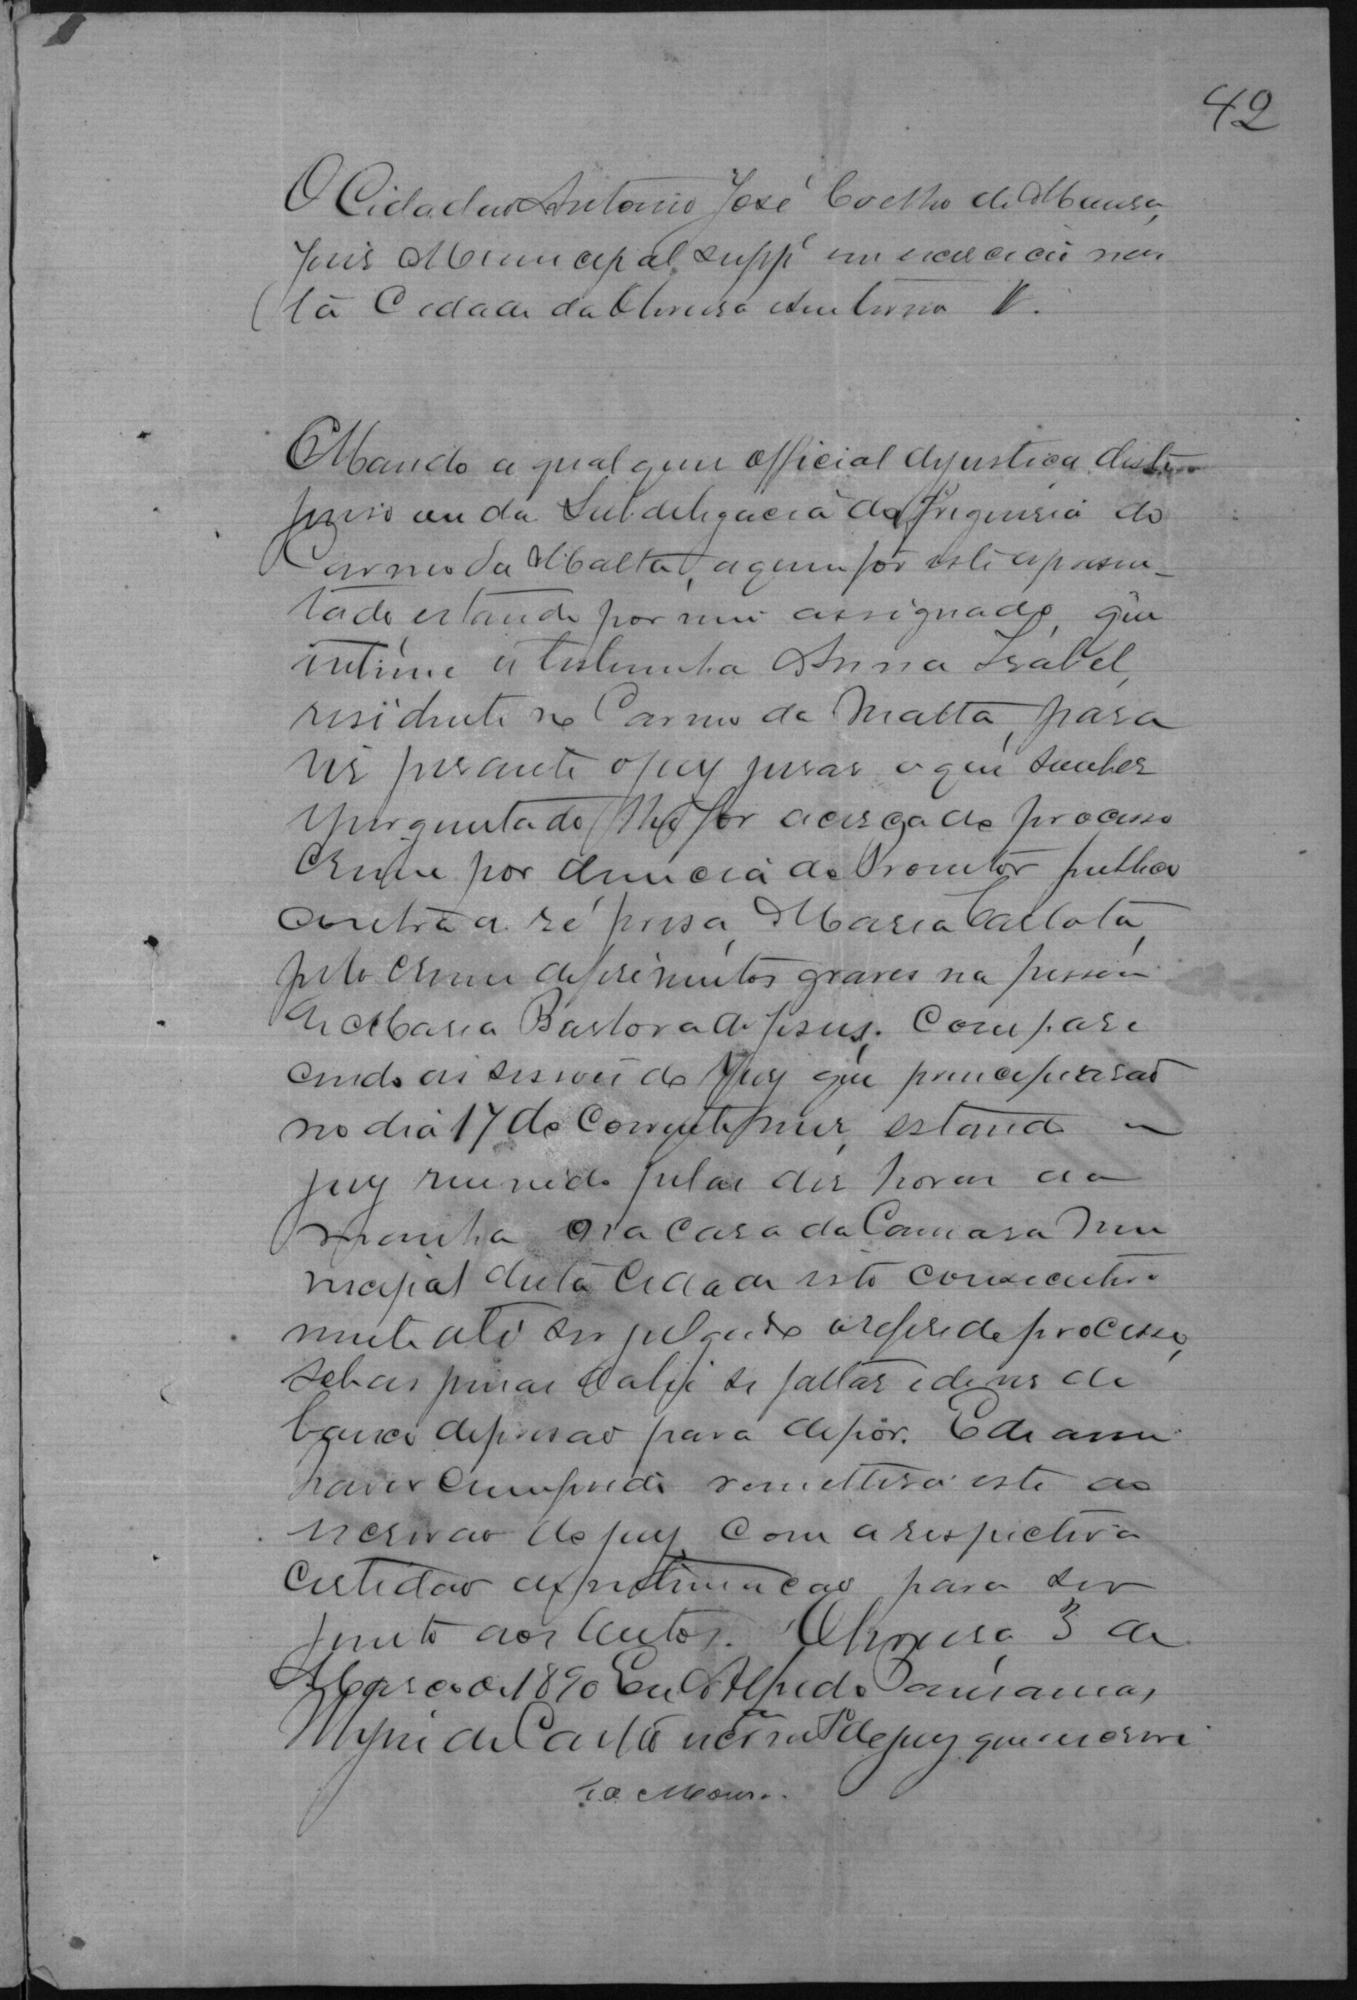 42
O Cidadão Antonio José Coelho de Moura,
Juis Municipal suppe em exercicio nes
ta Cidade da Oliveira em
Mando a qualquer official dejustiça deste
juiso ou da Subdelegacia da freguesia do
Carmo da Matta, a quem for este apresen-
tado estando por mim assignado, que
intime a testemunha Anna Isabel,
residente no Carmo da Matta, para
vir perante o jury jurar o que souber
e perguntado lhe for acerca do processo
crime por denuncia do Promotor publico
contra a ré presa, Maria Carlota,
pelo crime deferimentos graves na pessoa
de Maria Pastora de Jesus. Compare
cendo as sessões do Jury que principiarão
no dia 17 do Corrente mes, estando o
jury reunido pelas des horas da
manha na casa da Camara Mu
nicipal desta Cidade isto consecutiva
mente até ser julgado o referido processo,
sob as penas da lei se faltar e de vir de
baixo deprisão para depôr. E de assim
haver cumprido remetterá este ao
escrivão do jury com a respectiva
certidão de intimação para ser
junto aos autos. Oliveira, 3 de
Março de 1890 Eu Alfredo
de Castro escrivão do jury que escrevi
Moura.